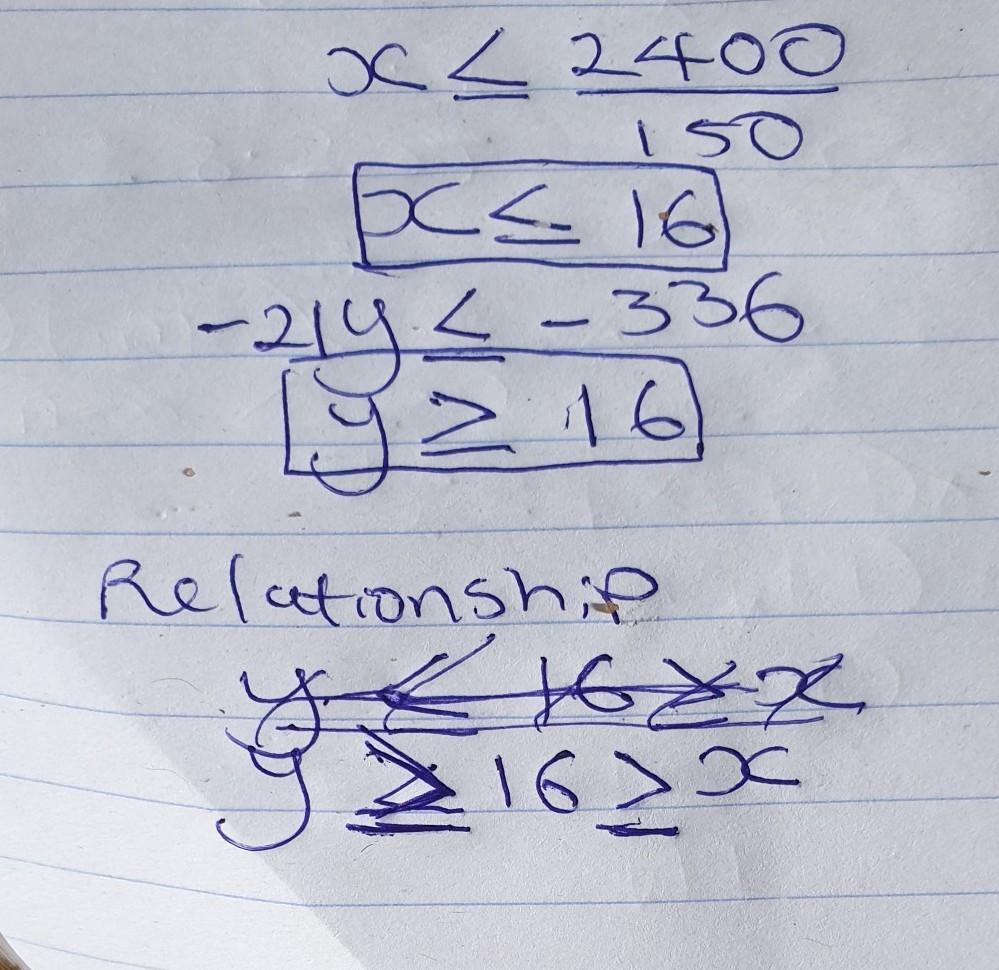 x ≤ 2400
150
x ≤ 16
-21y ≤ -336
y ≥ 16
Relationship
y ≤ 16 ≥ x
y ≥ 16 ≥ x